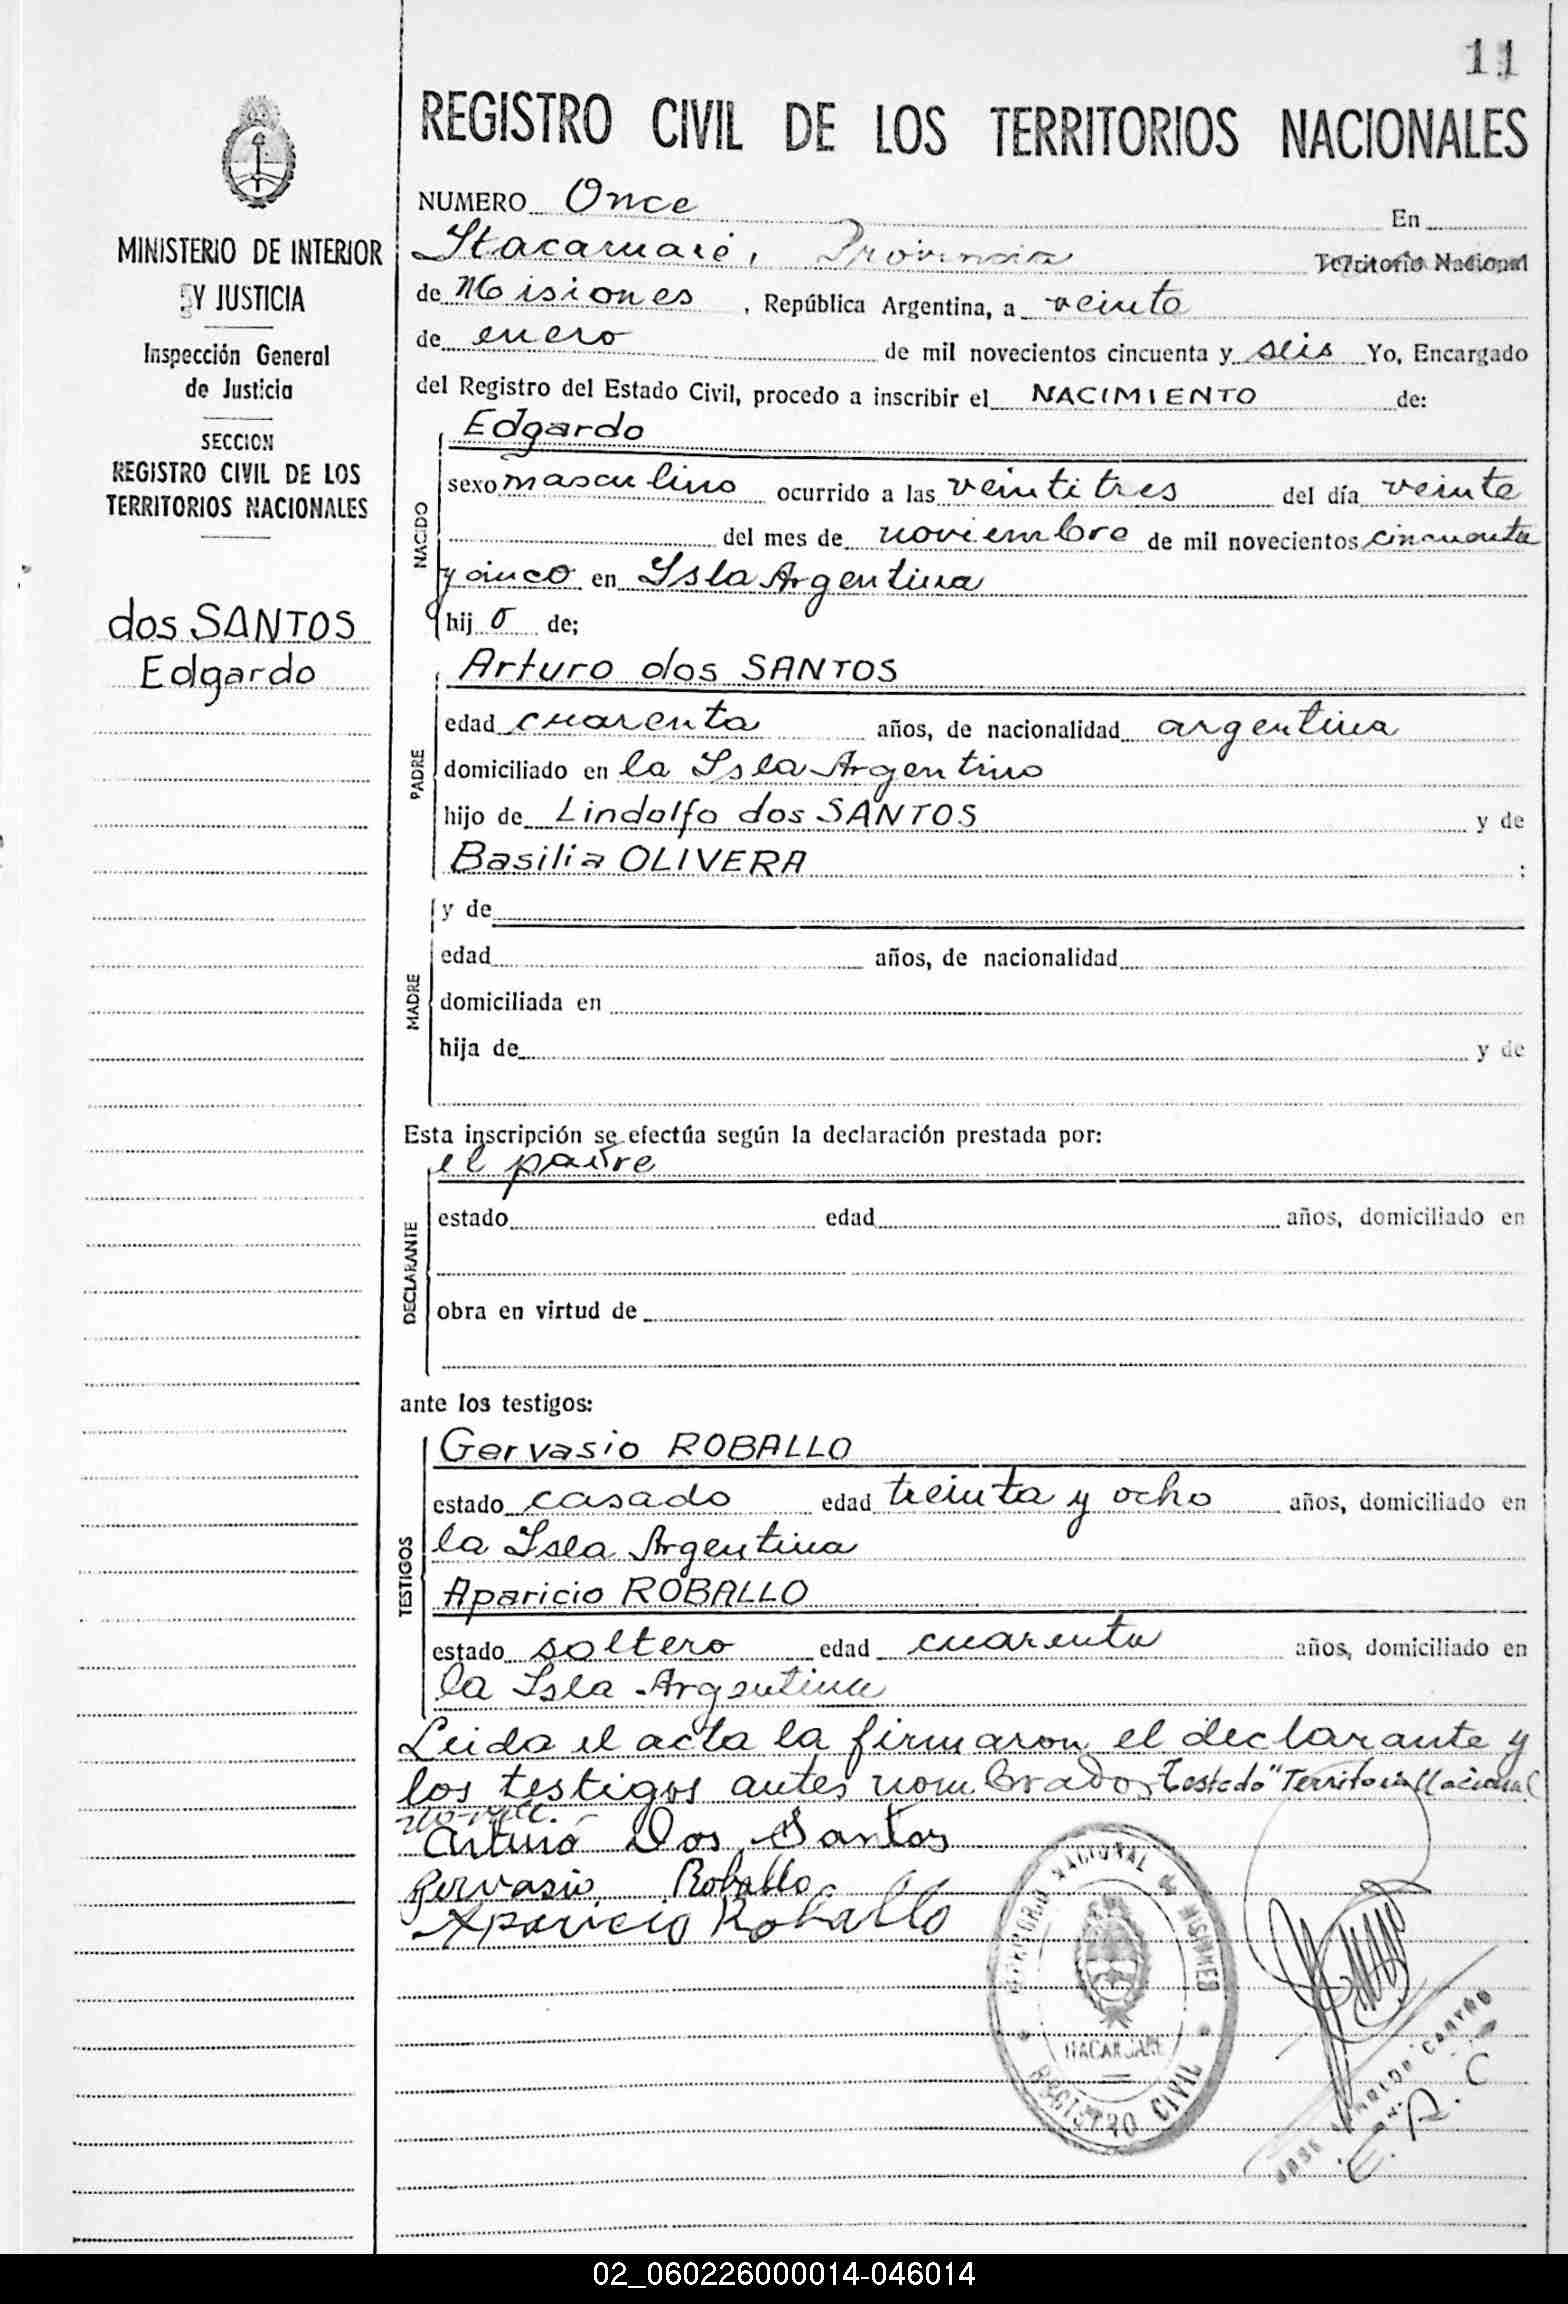 11
REGISTRO CIVIL DE LOS TERRITORIOS NACIONALES
MINISTERIO DE INTERIOR
Y JUSTICIA
Inspección General
de Justicia
SECCION
REGISTRO CIVIL DE LOS
TERRITORIOS NACIONALES
dos SANTOS
Edgardo
NUMERO Once En
Itacaruaré, Provincia Territorio Nacional
de Misiones, República Argentina, a veinte
de enero de mil novecientos cincuenta y seis Yo, Encargado
del Registro del Estado Civil, procedo a inscribir el NACIMIENTO de:
NACIDO
Edgardo
sexo masculino ocurrido a las veintitres del día veinte
del mes de noviembre de mil novecientos cincuenta
y cinco en Isla Argentina
hij o de;
PADRE
Arturo dos SANTOS
edad cuarenta años, de nacionalidad argentina
domiciliado en la Isla Argentina
hijo de Lindolfo dos SANTOS y de
Basilia OLIVERA ;
MADRE
y de
edad años, de nacionalidad
domiciliada en
hija de y de
Esta inscripción se efectúa según la declaración prestada por:
DECLARANTE
el padre
estado edad años, domiciliado en
obra en virtud de
ante los testigos:
TESTIGOS
Gervasio ROBALLO
estado casado edad treinta y ocho años, domiciliado en
la Isla Argentina
Aparicio ROBALLO
estado soltero edad cuarenta años, domiciliado en
la Isla Argentina
Leida el acta la firmaron el declarante y
los testigos antes nombrados Testado "Territorio Nacional
no vale.
Arturo Dos Santos
Gervasio Roballo
Aparicio Roballo
TERRITORIO NACIONAL DE MISIONES
ITACARUARE
REGISTRO CIVIL
JOSE CASTRO
E. R. C
02_060226000014-046014